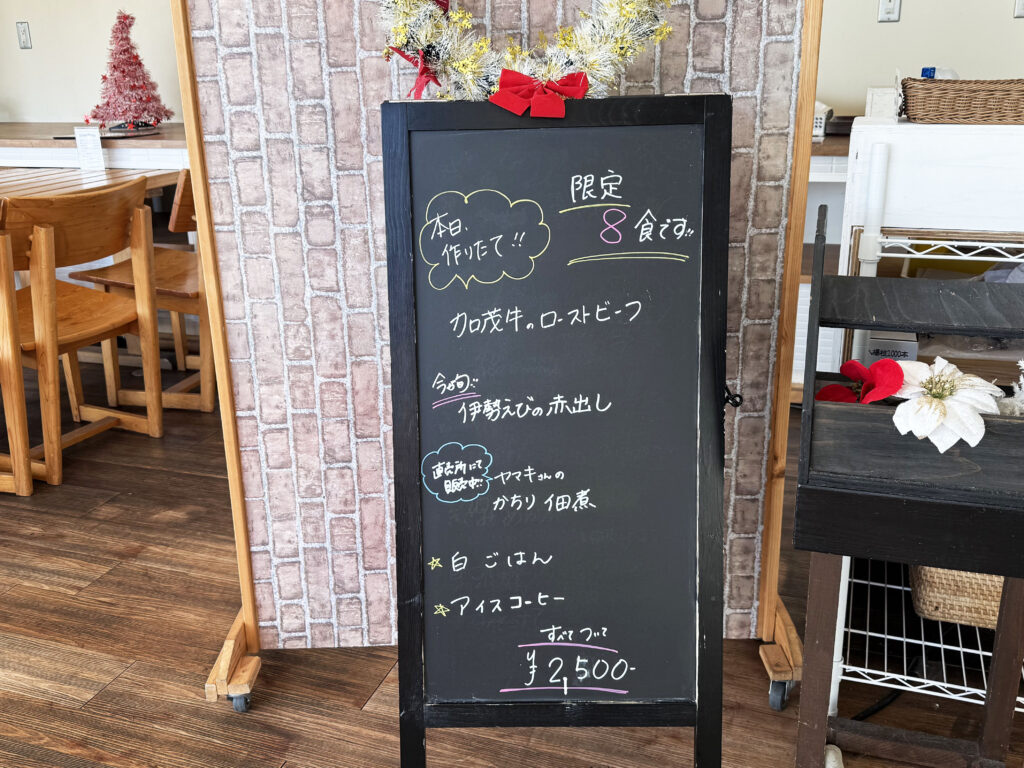 限定
8食です!!
本日、
作りたて!!
加茂牛のローストビーフ
今が旬!!
伊勢えびの赤出し
直売所にて
販売中!!
ヤマキさんの
かちり佃煮
☆白ごはん
☆アイスコーヒー
すべてついて
¥2,500-